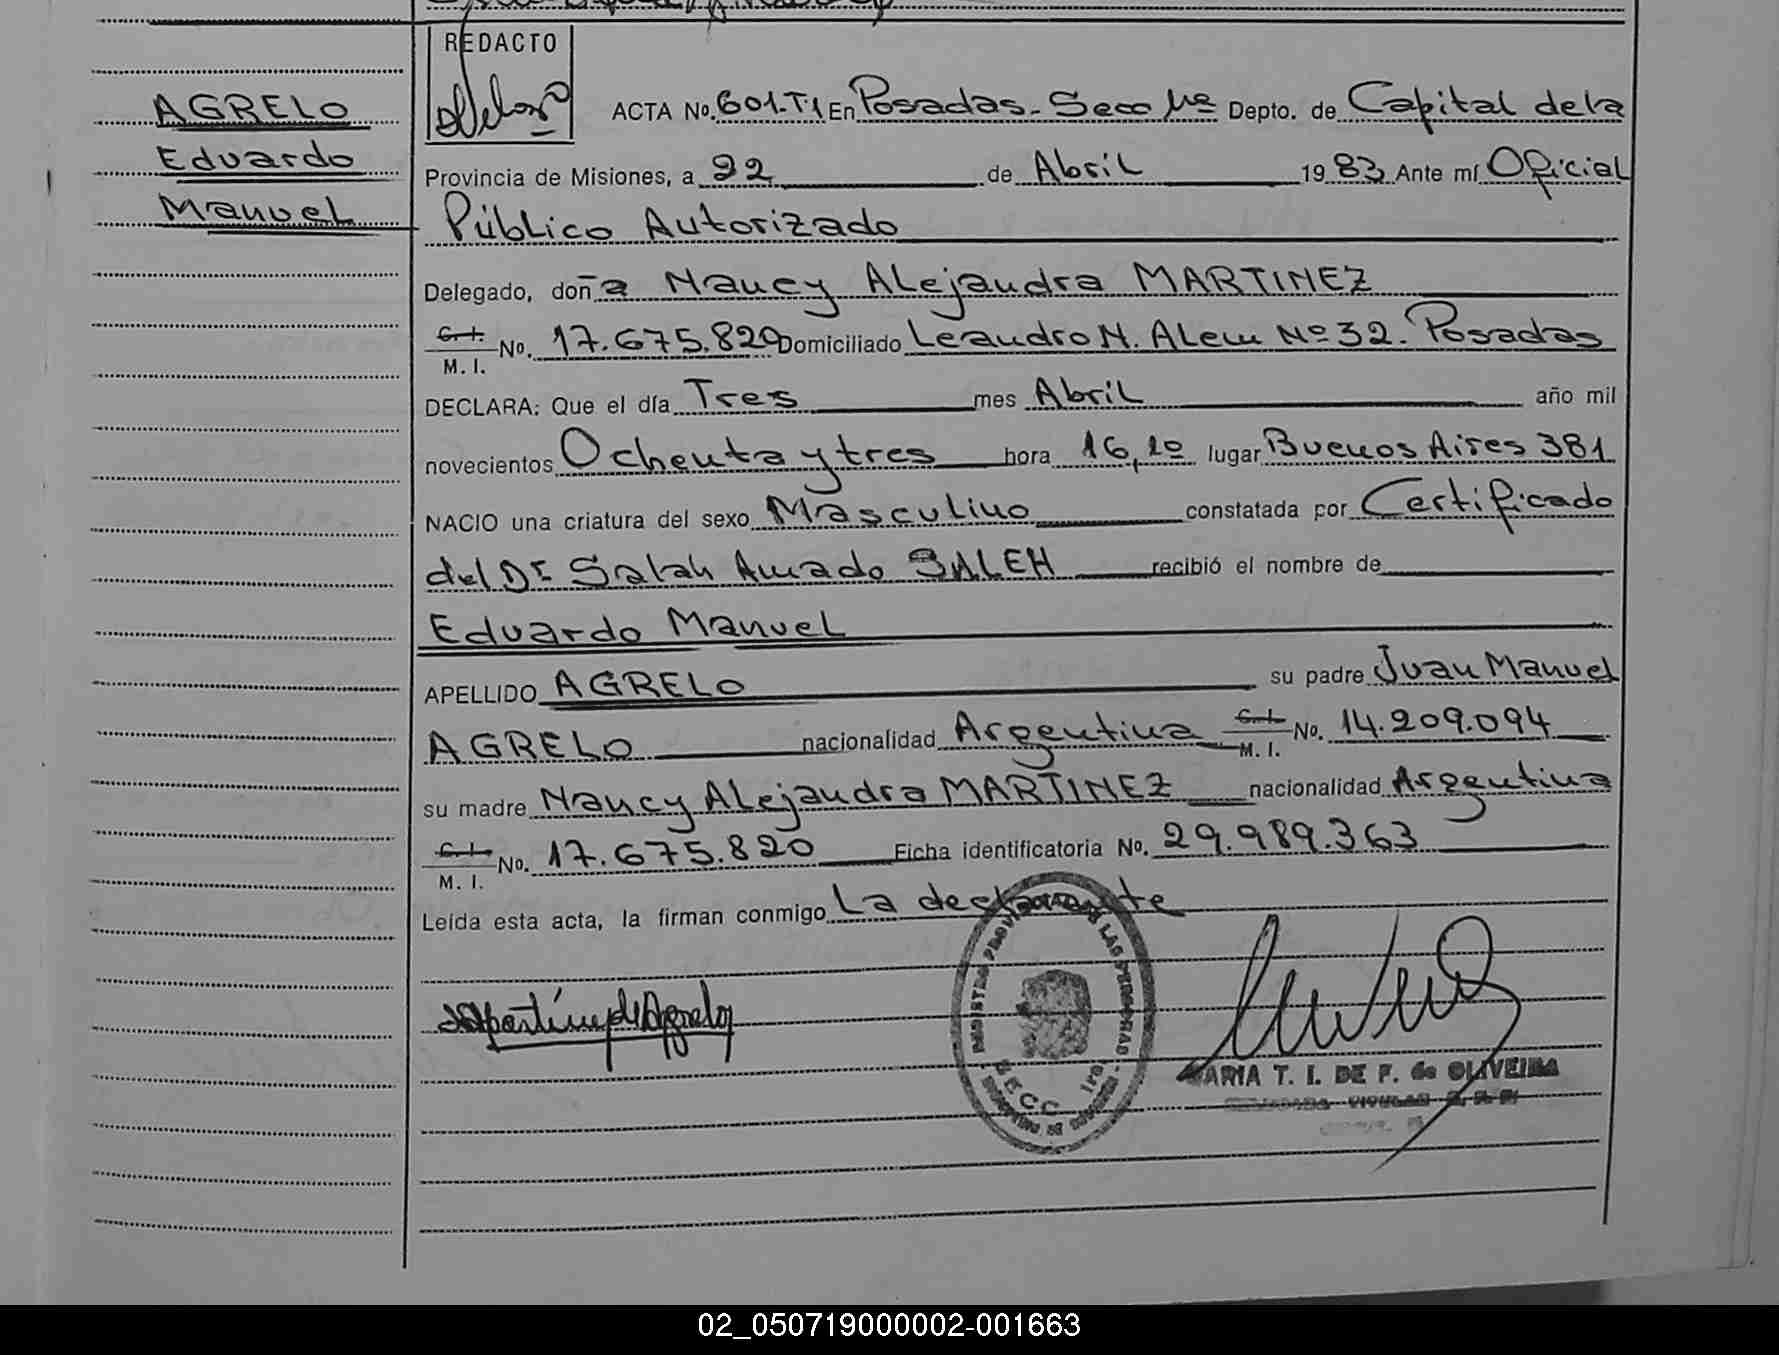 REDACTO
AGRELO
Eduardo
Manuel
ACTA No. 601.T1 En Posadas - Secc 1ra Depto. de Capital de la
Provincia de Misiones, a 22 de Abril 1983 Ante mí Oficial
Público Autorizado
Delegado, doña Nancy Alejandra MARTINEZ
C.I. M.I. No. 17.675.820 Domiciliado Leandro N. Alem Nº 32. Posadas
DECLARA: Que el día Tres mes Abril año mil
novecientos Ochenta y tres hora 16,10 lugar Buenos Aires 381
NACIO una criatura del sexo Masculino constatada por Certificado
del Dr Salah Amado SALEH recibió el nombre de
Eduardo Manuel
APELLIDO AGRELO su padre Juan Manuel
AGRELO nacionalidad Argentina C.I. M.I. No. 14.209.094
su madre Nancy Alejandra MARTINEZ nacionalidad Argentina
C.I. M.I. No. 17.675.820 Ficha identificatoria No. 29.989.363
Leída esta acta, la firman conmigo La declarante
MARIA T. I. DE F. de OLIVEIRA
02_050719000002-001663